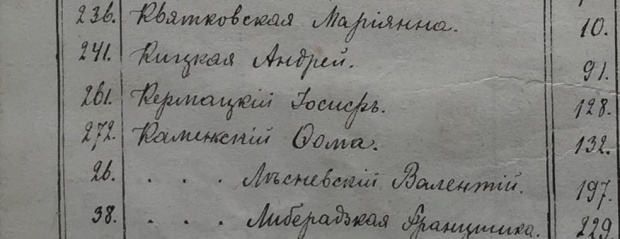 236. Квятковская Маріянна. 10.
241. Кицкая Андрей. 91.
261. Кермацкій Іосифъ. 128.
272. Каменскій Ѳома. 132.
26. . . . Лѣсневскій Валентій. 197.
38. . . . Либерадзкая Францишка. 229.